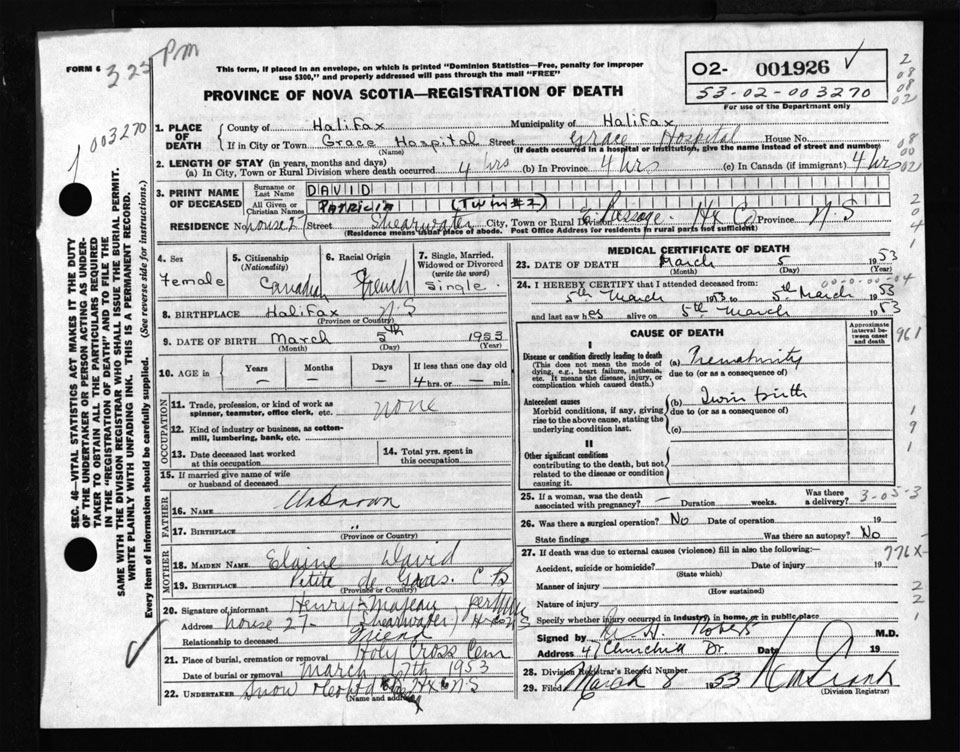 FORM 6
3 25 PM
This form, if placed in an envelope, on which is printed "Dominion Statistics—Free, penalty for improper
use $300," and properly addressed will pass through the mail "FREE"
PROVINCE OF NOVA SCOTIA—REGISTRATION OF DEATH
O2- 001926
53-02-003270
For use of the Department only
003270
1. PLACE OF DEATH
County of Halifax Municipality of Halifax
If in City or Town Grace Hospital Street Grace Hospital House No.
(Name) (If death occurred in a hospital or institution, give the name instead of street and number)
2. LENGTH OF STAY (in years, months and days)
(a) In City, Town or Rural Division where death occurred 4 hrs (b) In Province 4 hrs (c) In Canada (if immigrant) 4 hrs
3. PRINT NAME OF DECEASED
Surname or Last Name DAVID
All Given or Christian Names Patricia (Twin #2)
RESIDENCE No. house 27 Street Shearwater City, Town or Rural Division E. Passage. Hx Co Province N.S
(Residence means usual place of abode. Post Office Address for residents in rural parts not sufficient)
4. Sex
female
5. Citizenship
(Nationality)
Canadian
6. Racial Origin
French
7. Single, Married,
Widowed or Divorced
(write the word)
Single.
8. BIRTHPLACE Halifax N S
(Province or Country)
9. DATE OF BIRTH March 5th 1953
(Month) (Day) (Year)
10. AGE in
Years Months Days If less than one day old
— — — 4 hrs. or — min.
OCCUPATION
11. Trade, profession, or kind of work as
spinner, teamster, office clerk, etc. none
12. Kind of industry or business, as cotton-
mill, lumbering, bank, etc.
13. Date deceased last worked
at this occupation
14. Total yrs. spent in
this occupation
15. If married give name of wife
or husband of deceased
FATHER
16. NAME Unknown
17. BIRTHPLACE "
(Province or Country)
MOTHER
18. MAIDEN NAME Elaine David
19. BIRTHPLACE Petite de Gras. C B
(Province or Country)
20. Signature of informant Henry
Address house 27- Shearwater
Relationship to deceased friend
21. Place of burial, cremation or removal Holy Cross Cem
Date of burial or removal March 7th 1953
22. UNDERTAKER Snow N S
MEDICAL CERTIFICATE OF DEATH
23. DATE OF DEATH March 5 1953
(Month) (Day) (Year)
24. I HEREBY CERTIFY that I attended deceased from:
5th March 1953 to 5th March 1953
and last saw h es alive on 5th March 1953
CAUSE OF DEATH
Approximate
interval be-
tween onset
and death
I
Disease or condition directly leading to death
(This does not mean the mode of
dying, e.g., heart failure, asthenia,
etc. It means the disease, injury, or
complication which caused death.)
(a) Prematurity
due to (or as a consequence of)
Antecedent causes
Morbid conditions, if any, giving
rise to the above cause, stating the
underlying condition last.
(b) Twin birth
due to (or as a consequence of)
(c)
II
Other significant conditions
contributing to the death, but not
related to the disease or condition
causing it.
25. If a woman, was the death
associated with pregnancy? — Duration weeks. Was there
a delivery? 3-05-3
26. Was there a surgical operation? No Date of operation 19
State findings Was there an autopsy? No
27. If death was due to external causes (violence) fill in also the following:—
Accident, suicide or homicide? Date of injury 19
(State which)
Manner of injury
(How sustained)
Nature of injury
Specify whether injury occurred in industry, in home, or in public place
Signed by M.D.
Address 47 Churchill Dr Date 19
28. Division Registrar's Record Number
29. Filed March 8 1953
(Division Registrar)
961
1
9
1
776X-
2
2
1
SEC. 46—VITAL STATISTICS ACT MAKES IT THE DUTY
OF THE UNDERTAKER OR PERSON ACTING AS UNDER-
TAKER TO OBTAIN ALL THE PARTICULARS REQUIRED
IN THE "REGISTRATION OF DEATH" AND TO FILE THE
SAME WITH THE DIVISION REGISTRAR WHO SHALL ISSUE THE BURIAL PERMIT.
WRITE PLAINLY WITH UNFADING INK. THIS IS A PERMANENT RECORD.
Every item of information should be carefully supplied. (See reverse side for instructions.)